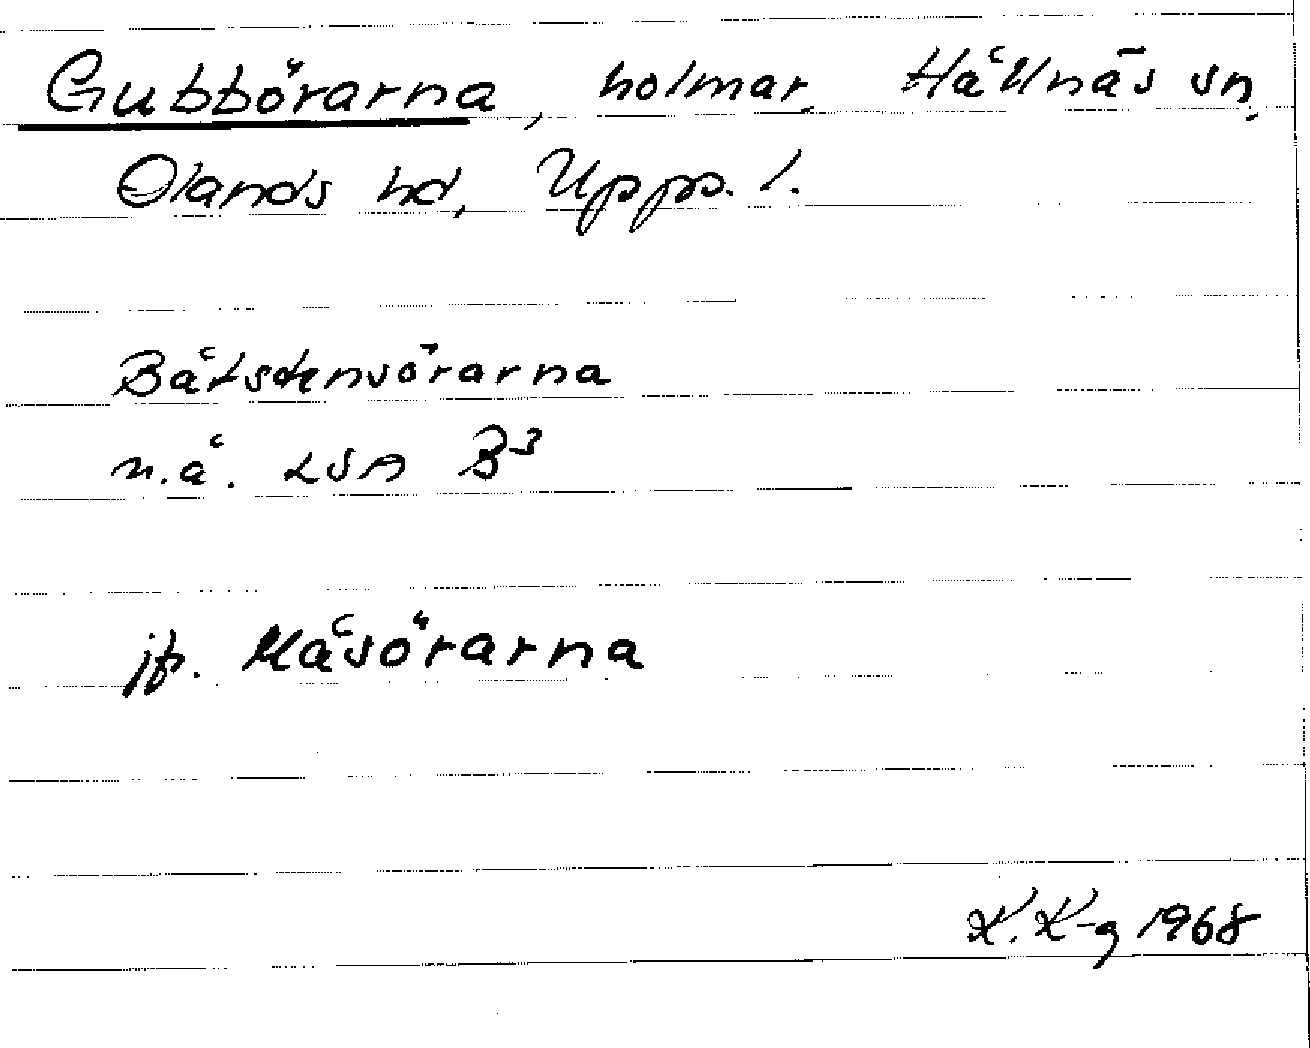 Gubbörarna, holmar, Hållnäs sn,
Olands hd, Upps. l.
Båtstensörarna
n.å. LSA B³
jfr. Måsörarna
K. K-g 1968